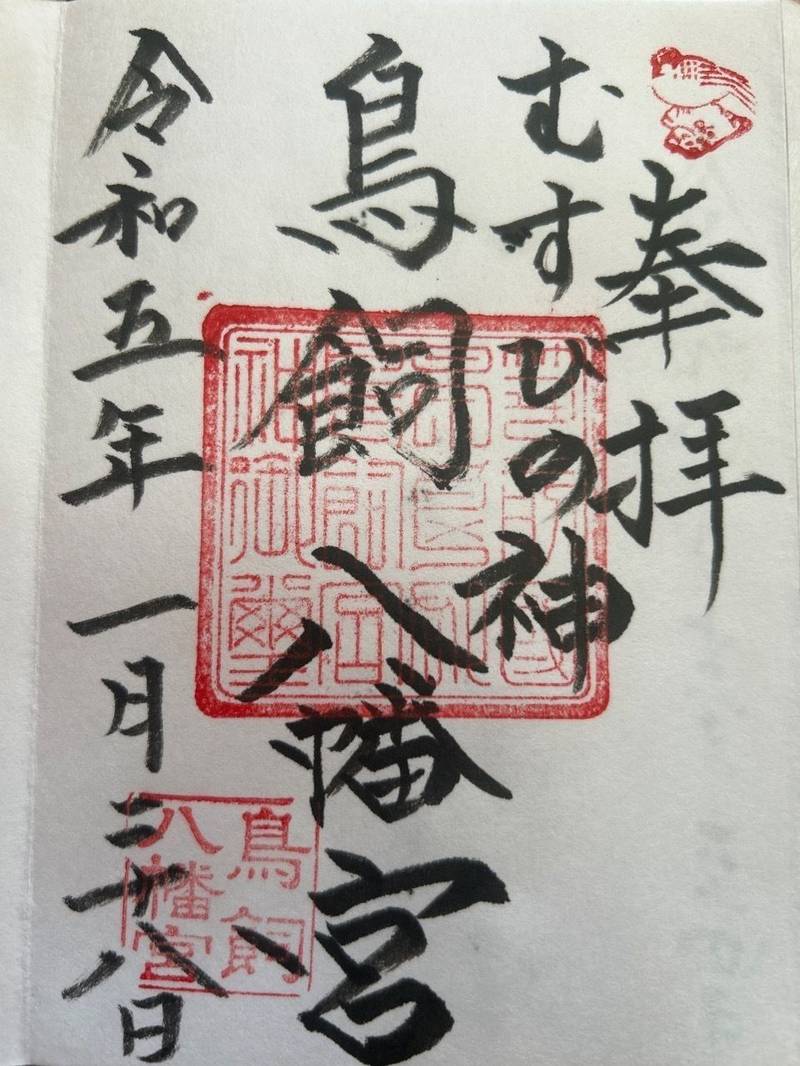 奉拝
むすびの神
鳥飼八幡宮
令和五年一月二十八日
鳥飼
八幡宮